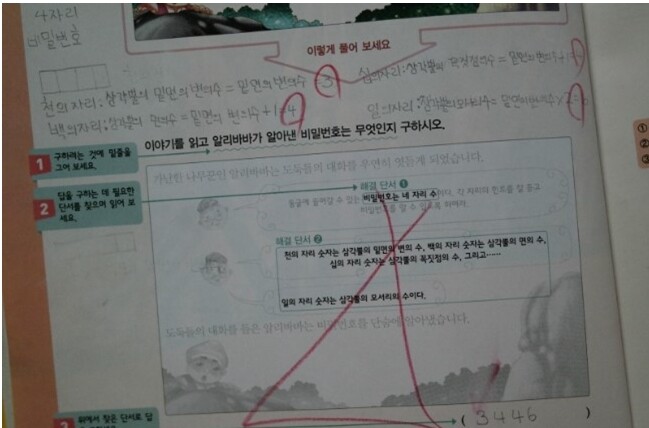 4자리
비밀번호
이렇게 풀어 보세요
천의자리:삼각뿔의 밑면의 변의수 = 밑면의 변의수 3
십의자리:삼각뿔의 꼭짓점의수 = 밑면의 변의수+1=4
백의자리:삼각뿔의 면의수 = 밑면의 변의수+1=4
일의자리:삼각뿔의모서리수=밑면의변의수×2=6
이야기를 읽고 알리바바가 알아낸 비밀번호는 무엇인지 구하시오.
1 구하려는 것에 밑줄을
그어 보세요.
가난한 나무꾼인 알리바바는 도둑들의 대화를 우연히 엿듣게 되었습니다.
2 답을 구하는 데 필요한
단서를 찾으며 읽어 보
세요.
해결 단서 ①
동굴에 들어갈 수 있는 비밀번호는 네 자리 수
해결 단서 ②
천의 자리 숫자는 삼각뿔의 밑면의 변의 수, 백의 자리 숫자는 삼각뿔의 면의 수,
십의 자리 숫자는 삼각뿔의 꼭짓점의 수, 그리고……
일의 자리 숫자는 삼각뿔의 모서리의 수이다.
도둑들의 대화를 들은 알리바바는 비밀번호를 단숨에 알아냈습니다.
3 위에서 찾은 단서로 답
( 3446 )
①
②
③